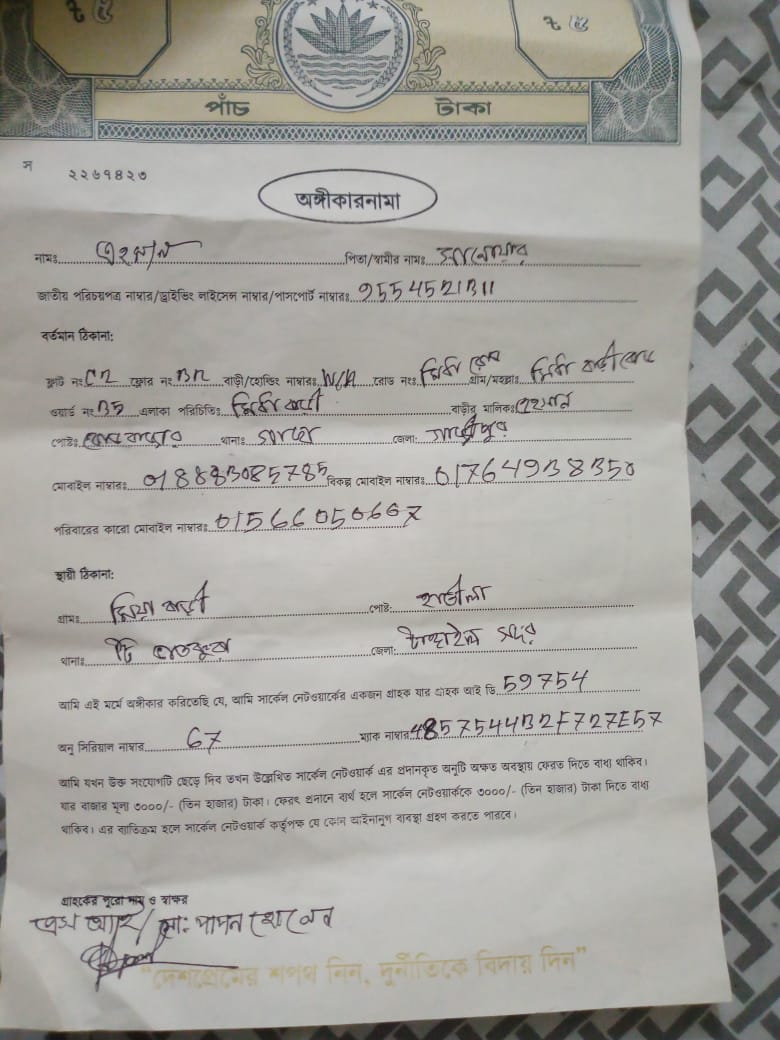 ৳ ৫ ৳ ৫
পাঁচ টাকা
স ২২৬৭৪২৩
অঙ্গীকারনামা
নামঃ এহসান পিতা/স্বামীর নামঃ সানোয়ার
জাতীয় পরিচয়পত্র নাম্বার/ড্রাইভিং লাইসেন্স নাম্বার/পাসপোর্ট নাম্বারঃ 9554521311
বর্তমান ঠিকানা:
ফ্লাট নং ফ্লোর নং বাড়ী/হোল্ডিং নাম্বারঃ রোড নংঃ গ্রাম/মহল্লাঃ
ওয়ার্ড নং 35 এলাকা পরিচিতিঃ বাড়ীর মালিকঃ
পোষ্টঃ থানাঃ গাছা জেলা: গাজীপুর
মোবাইল নাম্বারঃ 01883085785 বিকল্প মোবাইল নাম্বারঃ 01764938350
পরিবারের কারো মোবাইল নাম্বারঃ 01566050667
স্থায়ী ঠিকানা:
গ্রামঃ পোষ্ট:
থানাঃ জেলা: টাঙ্গাইল সদর
আমি এই মর্মে অঙ্গীকার করিতেছি যে, আমি সার্কেল নেটওয়ার্কের একজন গ্রাহক যার গ্রাহক আই ডি 59754
অনু সিরিয়াল নাম্বার 67 ম্যাক নাম্বার 485754432F727E57
আমি যখন উক্ত সংযোগটি ছেড়ে দিব তখন উল্লেখিত সার্কেল নেটওয়ার্ক এর প্রদানকৃত অনুটি অক্ষত অবস্থায় ফেরত দিতে বাধ্য থাকিব।
যার বাজার মূল্য ৩০০০/- (তিন হাজার) টাকা। ফেরৎ প্রদানে ব্যর্থ হলে সার্কেল নেটওয়ার্ককে ৩০০০/- (তিন হাজার) টাকা দিতে বাধ্য
থাকিব। এর ব্যতিক্রম হলে সার্কেল নেটওয়ার্ক কর্তৃপক্ষ যে কোন আইনানুগ ব্যবস্থা গ্রহণ করতে পারবে।
গ্রাহকের পুরো নাম ও স্বাক্ষর
মো: পাপন হোসেন
“দেশপ্রেমের শপথ নিন, দুর্নীতিকে বিদায় দিন”